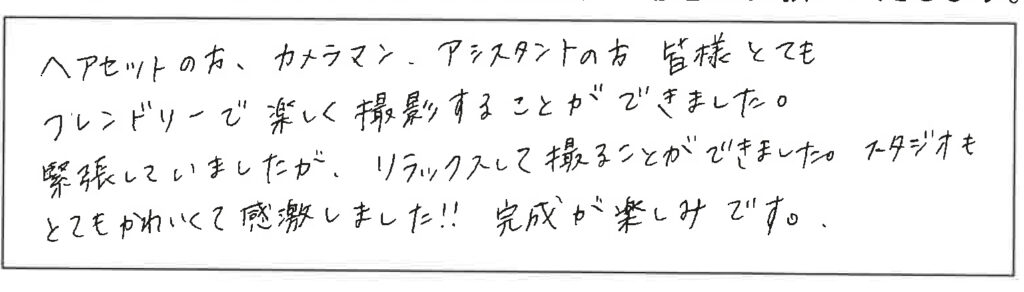 ヘアセットの方、カメラマン、アシスタントの方 皆様とても
フレンドリーで楽しく撮影することができました。
緊張していましたが、リラックスして撮ることができました。スタジオも
とてもかわいくて感激しました!! 完成が楽しみです。